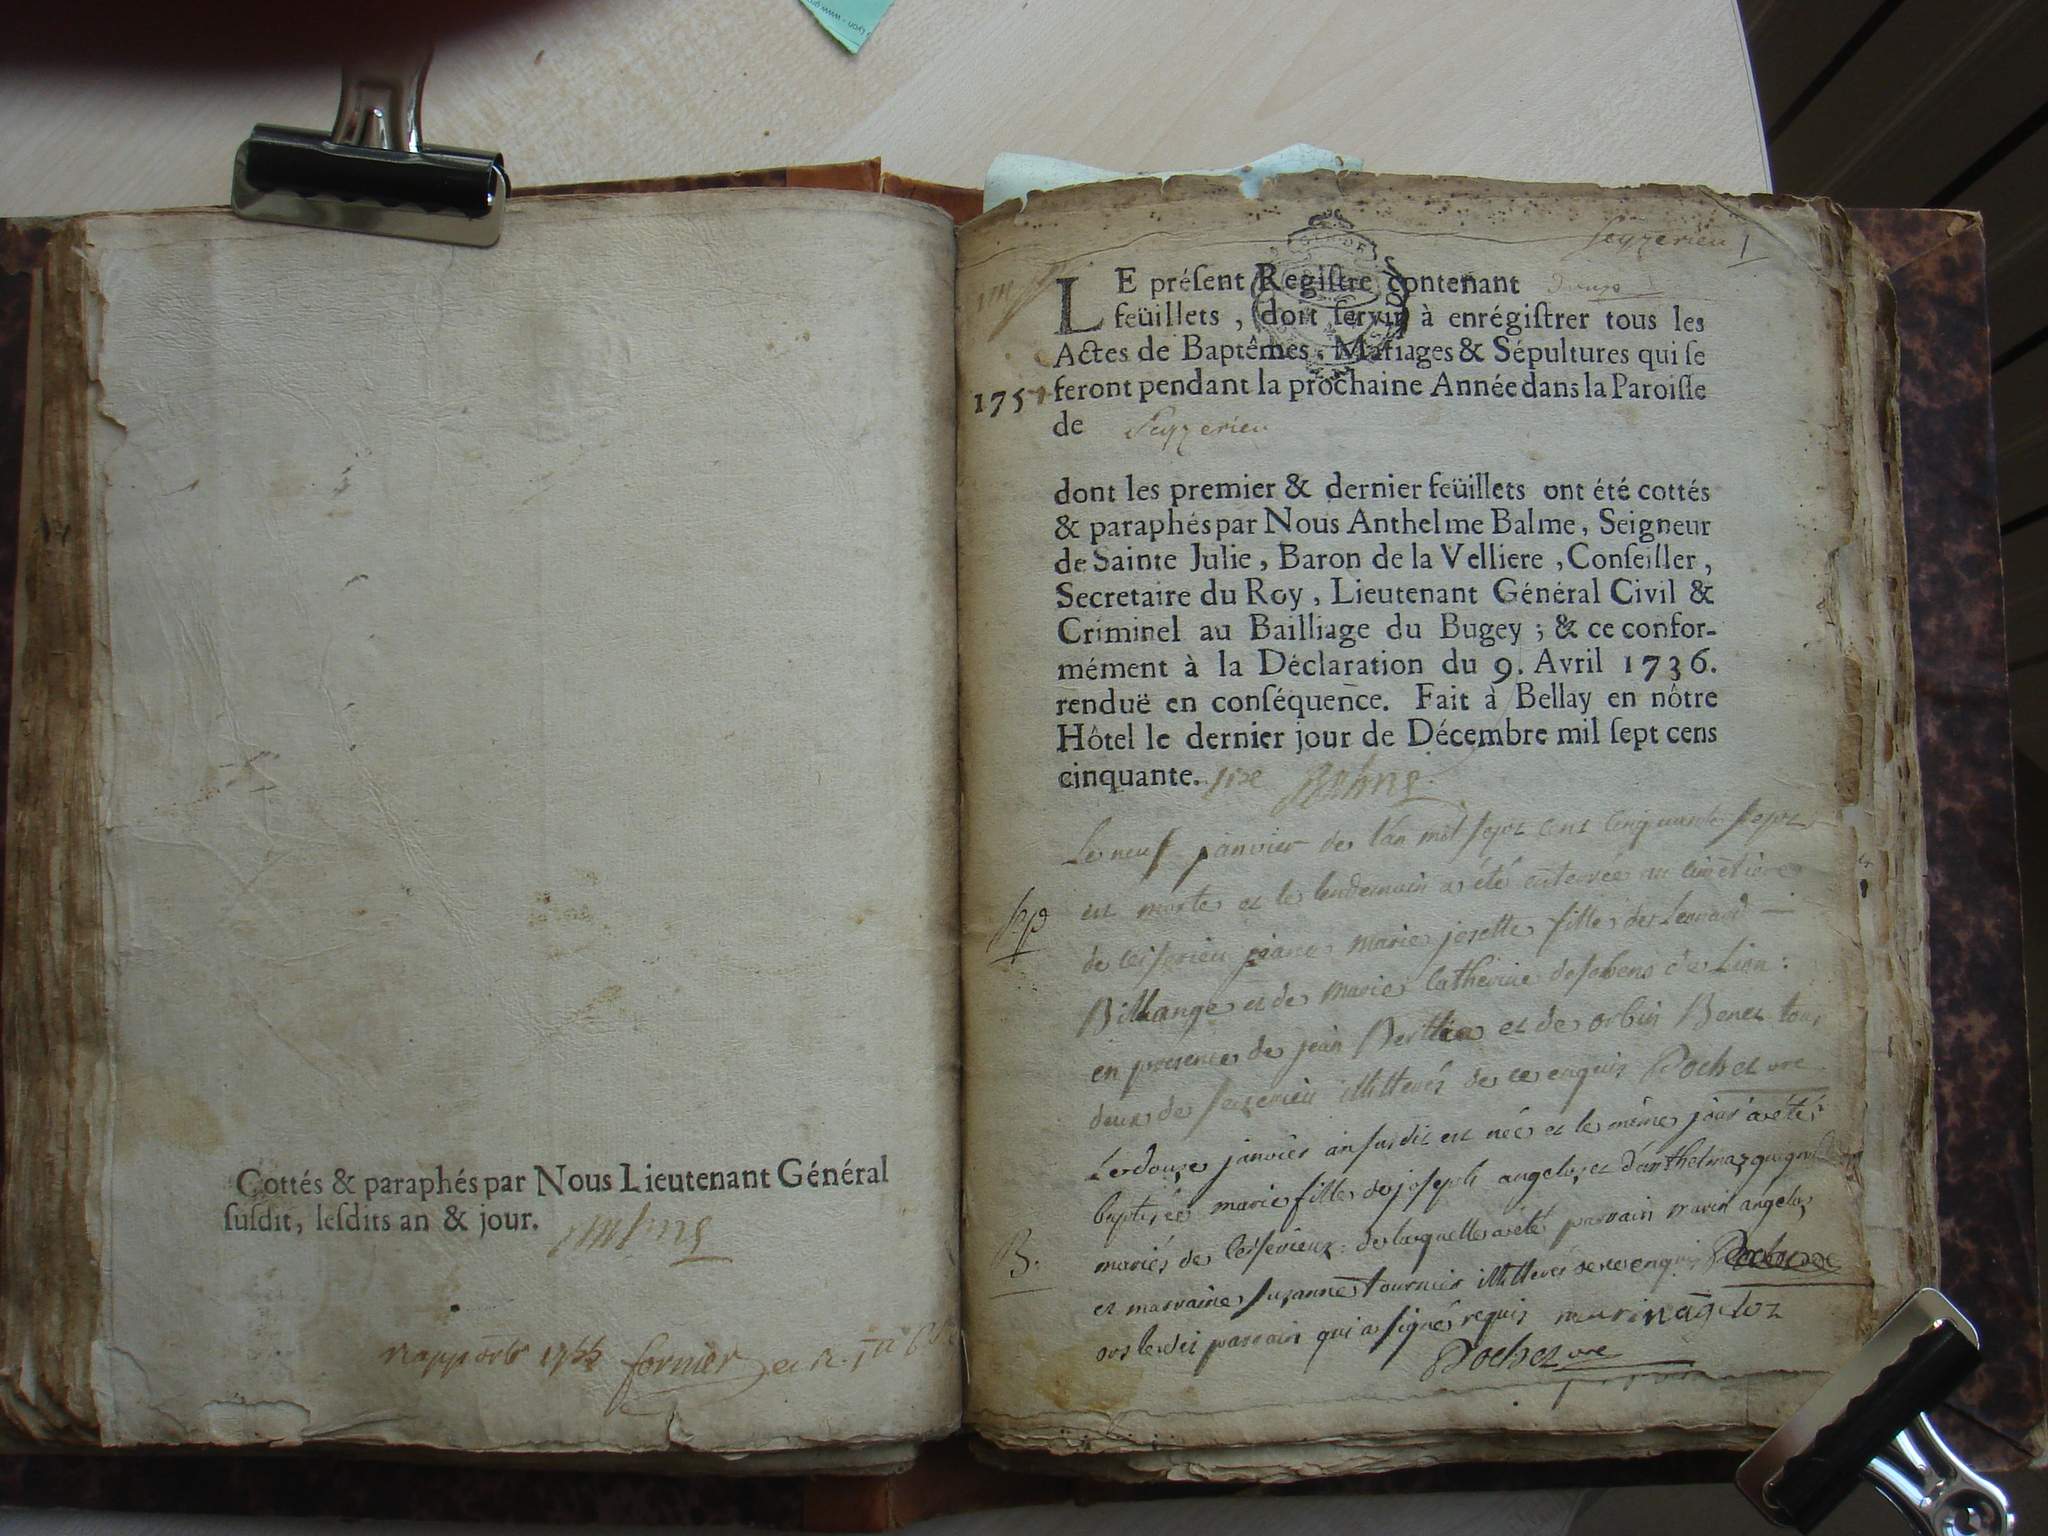 Cottés & paraphés par Nous Lieutenant Général
ſuſdit, leſdits an & jour.
fornier
Seyzerieu 1
LE préſent Regiſtre contenant douze
feüillets, doit ſervir à enrégiſtrer tous les
Actes de Baptêmes, Mariages & Sépultures qui ſe
feront pendant la prochaine Année dans la Paroiſſe
de Seyzerieu
1757
dont les premier & dernier feüillets ont été cottés
& paraphés par Nous Anthelme Balme, Seigneur
de Sainte Julie, Baron de la Velliere, Conſeiller,
Secretaire du Roy, Lieutenant Général Civil &
Criminel au Bailliage du Bugey; & ce confor-
mément à la Déclaration du 9. Avril 1736.
renduë en conſéquence. Fait à Bellay en nôtre
Hôtel le dernier jour de Décembre mil ſept cens
cinquante. six Balme
Le neuf janvier de l'an mil sept cent cinquante sept
est morte et le lendemain a été enterrée au cimetière
de ceiserieu marie josette fille de Leonard
Billange et de marie Catherine de Lion
en présence de jean Berthier et de orbin Benet tous
deux de seizerieu illitterés de ce enquis Pochet vre
Le douze janvier an susdit est née et le même jour a été
baptisée marie fille de joseph angeloz et d'anthelmaz
mariés de Ceiserieux de laquelle a été parrain marin angeloz
et marraine suzanne tournier illitterés de ce enquis
ors le dit parrain qui a signé requis marin āgeloz
Pochet vre
B.